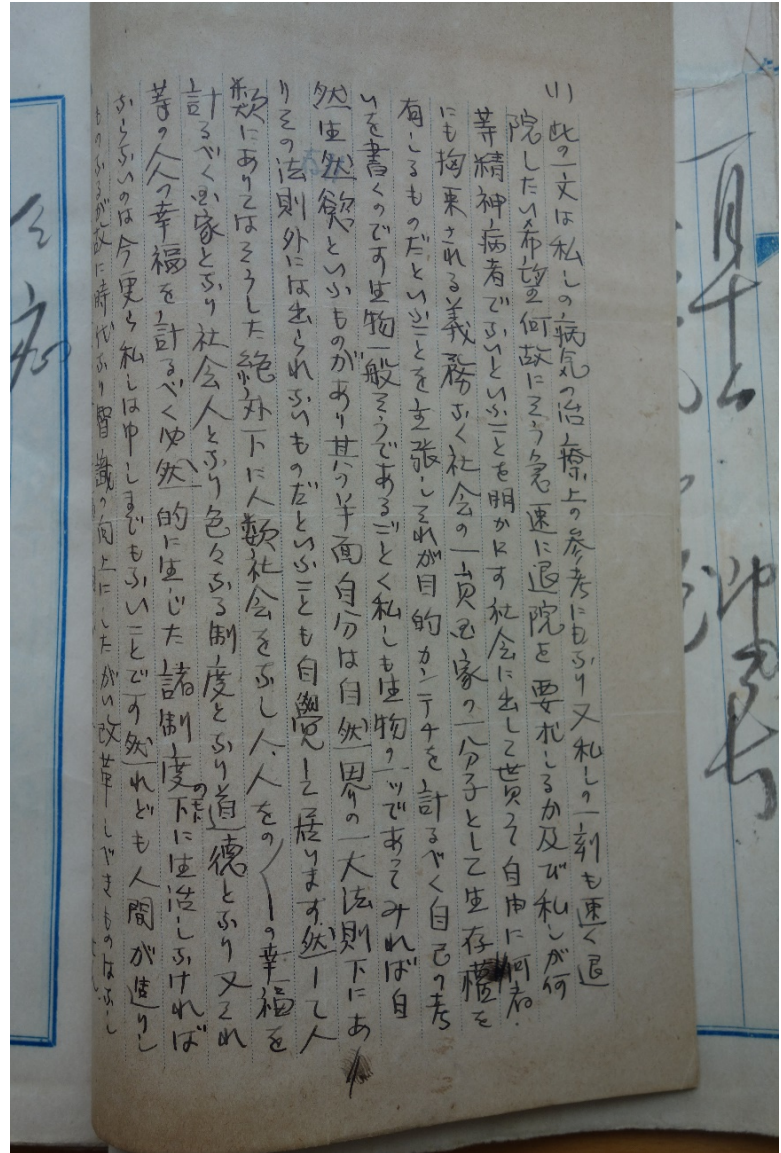 (1)此の一文は私しの病気の治療上の参考にもなり又私しの一刻も速く退
院したい希望何故にそう急速に退院を要求しるか及び私しが何
等精神病者でないといふことを明かにす社会に出して貰って自由に何者
にも拘束される義務なく社会の一員国家の一分子として生存権を
有しるものだといふことを主張しそれが目的カンテチを計るべく自己の考
いを書くのです生物一般そうであるごとく私しも生物の一ツであってみれば自
然生然慾といふものがあり其の半面自分は自然界の一大法則下にあ
りその法則外には出られないものだといふことも自覺して居ります然して人
類にありてはそうした絶対下に人類社会をなし人、人をの/\の幸福を
計るべく国家となり社会人となり色々なる制度となり道徳となり又それ
等の人々の幸福を計るべく必然的に生じた諸制度のモト下に生活しなければ
ならないのは今更ら私しは申しまでもないことです然れども人間が造りし
ものなるが故に時代なり智識の向上にしたがい改革しできものはなし